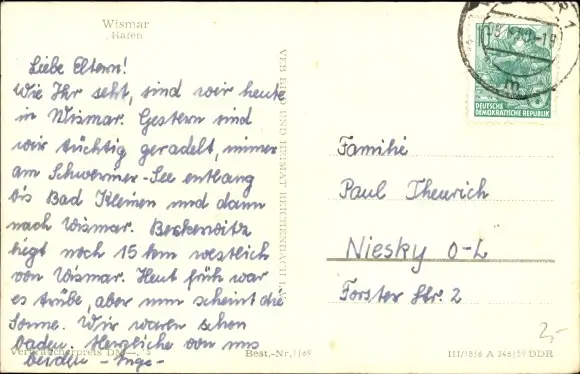 Wismar
Hafen
Liebe Eltern!
Wie Ihr seht, sind wir heute
in Wismar. Gestern sind
wir tüchtig geradelt, immer
am Schweriner-See entlang
bis Bad Kleinen und dann
nach Wismar.
liegt noch 15 km westlich
von Wismar. Heut früh war
es trübe, aber nun scheint die
Sonne. Wir waren schon
baden. Herzliche von uns
beiden - Inge -
Verbraucherpreis DM
Best.-Nr. 1/69
III/18/6 A 246/59 DDR
VEB BILD UND HEIMAT REICHENBACH
10
DEUTSCHE
DEMOKRATISCHE REPUBLIK
Familie
Paul Theurich
Niesky O-L
Forster Str. 2
2,-